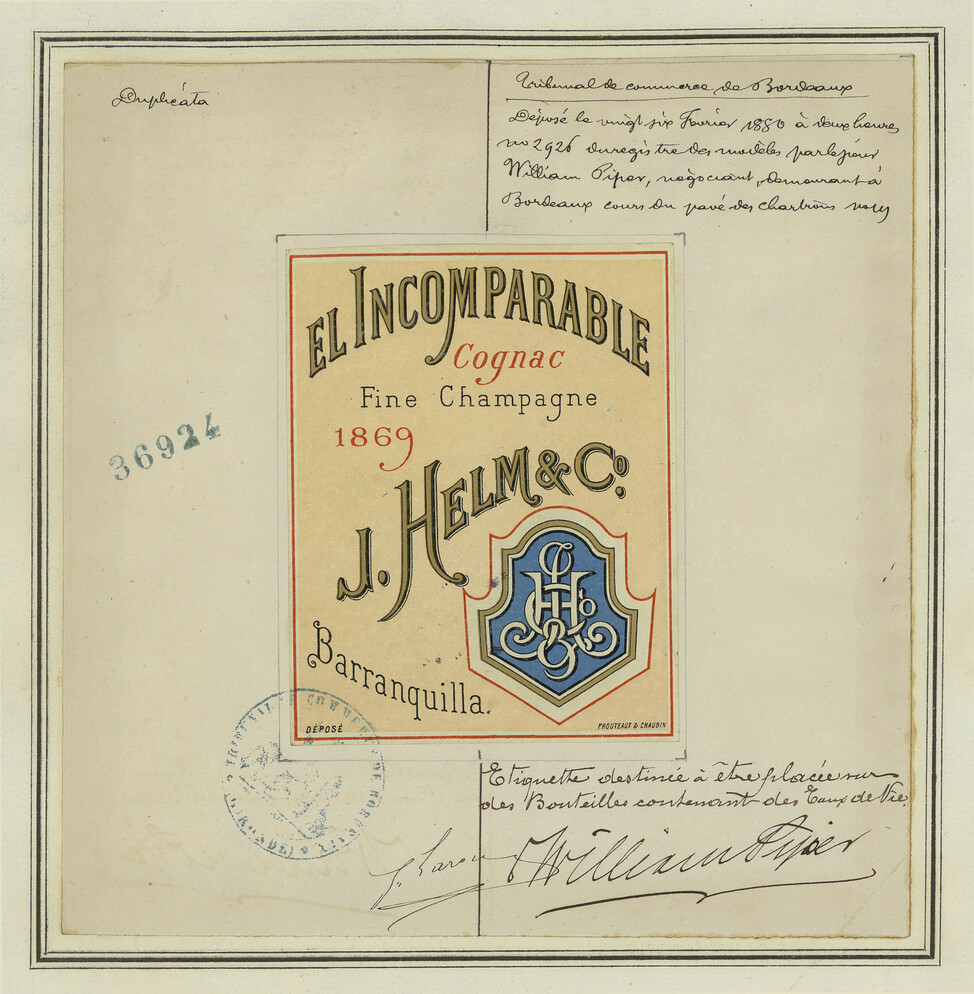 Duplicata
Tribunal de commerce de Bordeaux
Déposé le vingt six Février 1880 à deux heures
no 2926 du registre des modèles par le sieur
William Piper, négociant, demeurant à
Bordeaux cours du pavé des chartrons
EL INCOMPARABLE
Cognac
Fine Champagne
1869
36924
J. HELM & Co.
Barranquilla.
DÉPOSÉ
PROUTEAUT & CHAUBIN
TRIBUNAL DE COMMERCE DE BORDEAUX
(GIRONDE)
Etiquette destinée à être placée sur
des Bouteilles contenant des Eaux de Vie.
William Piper